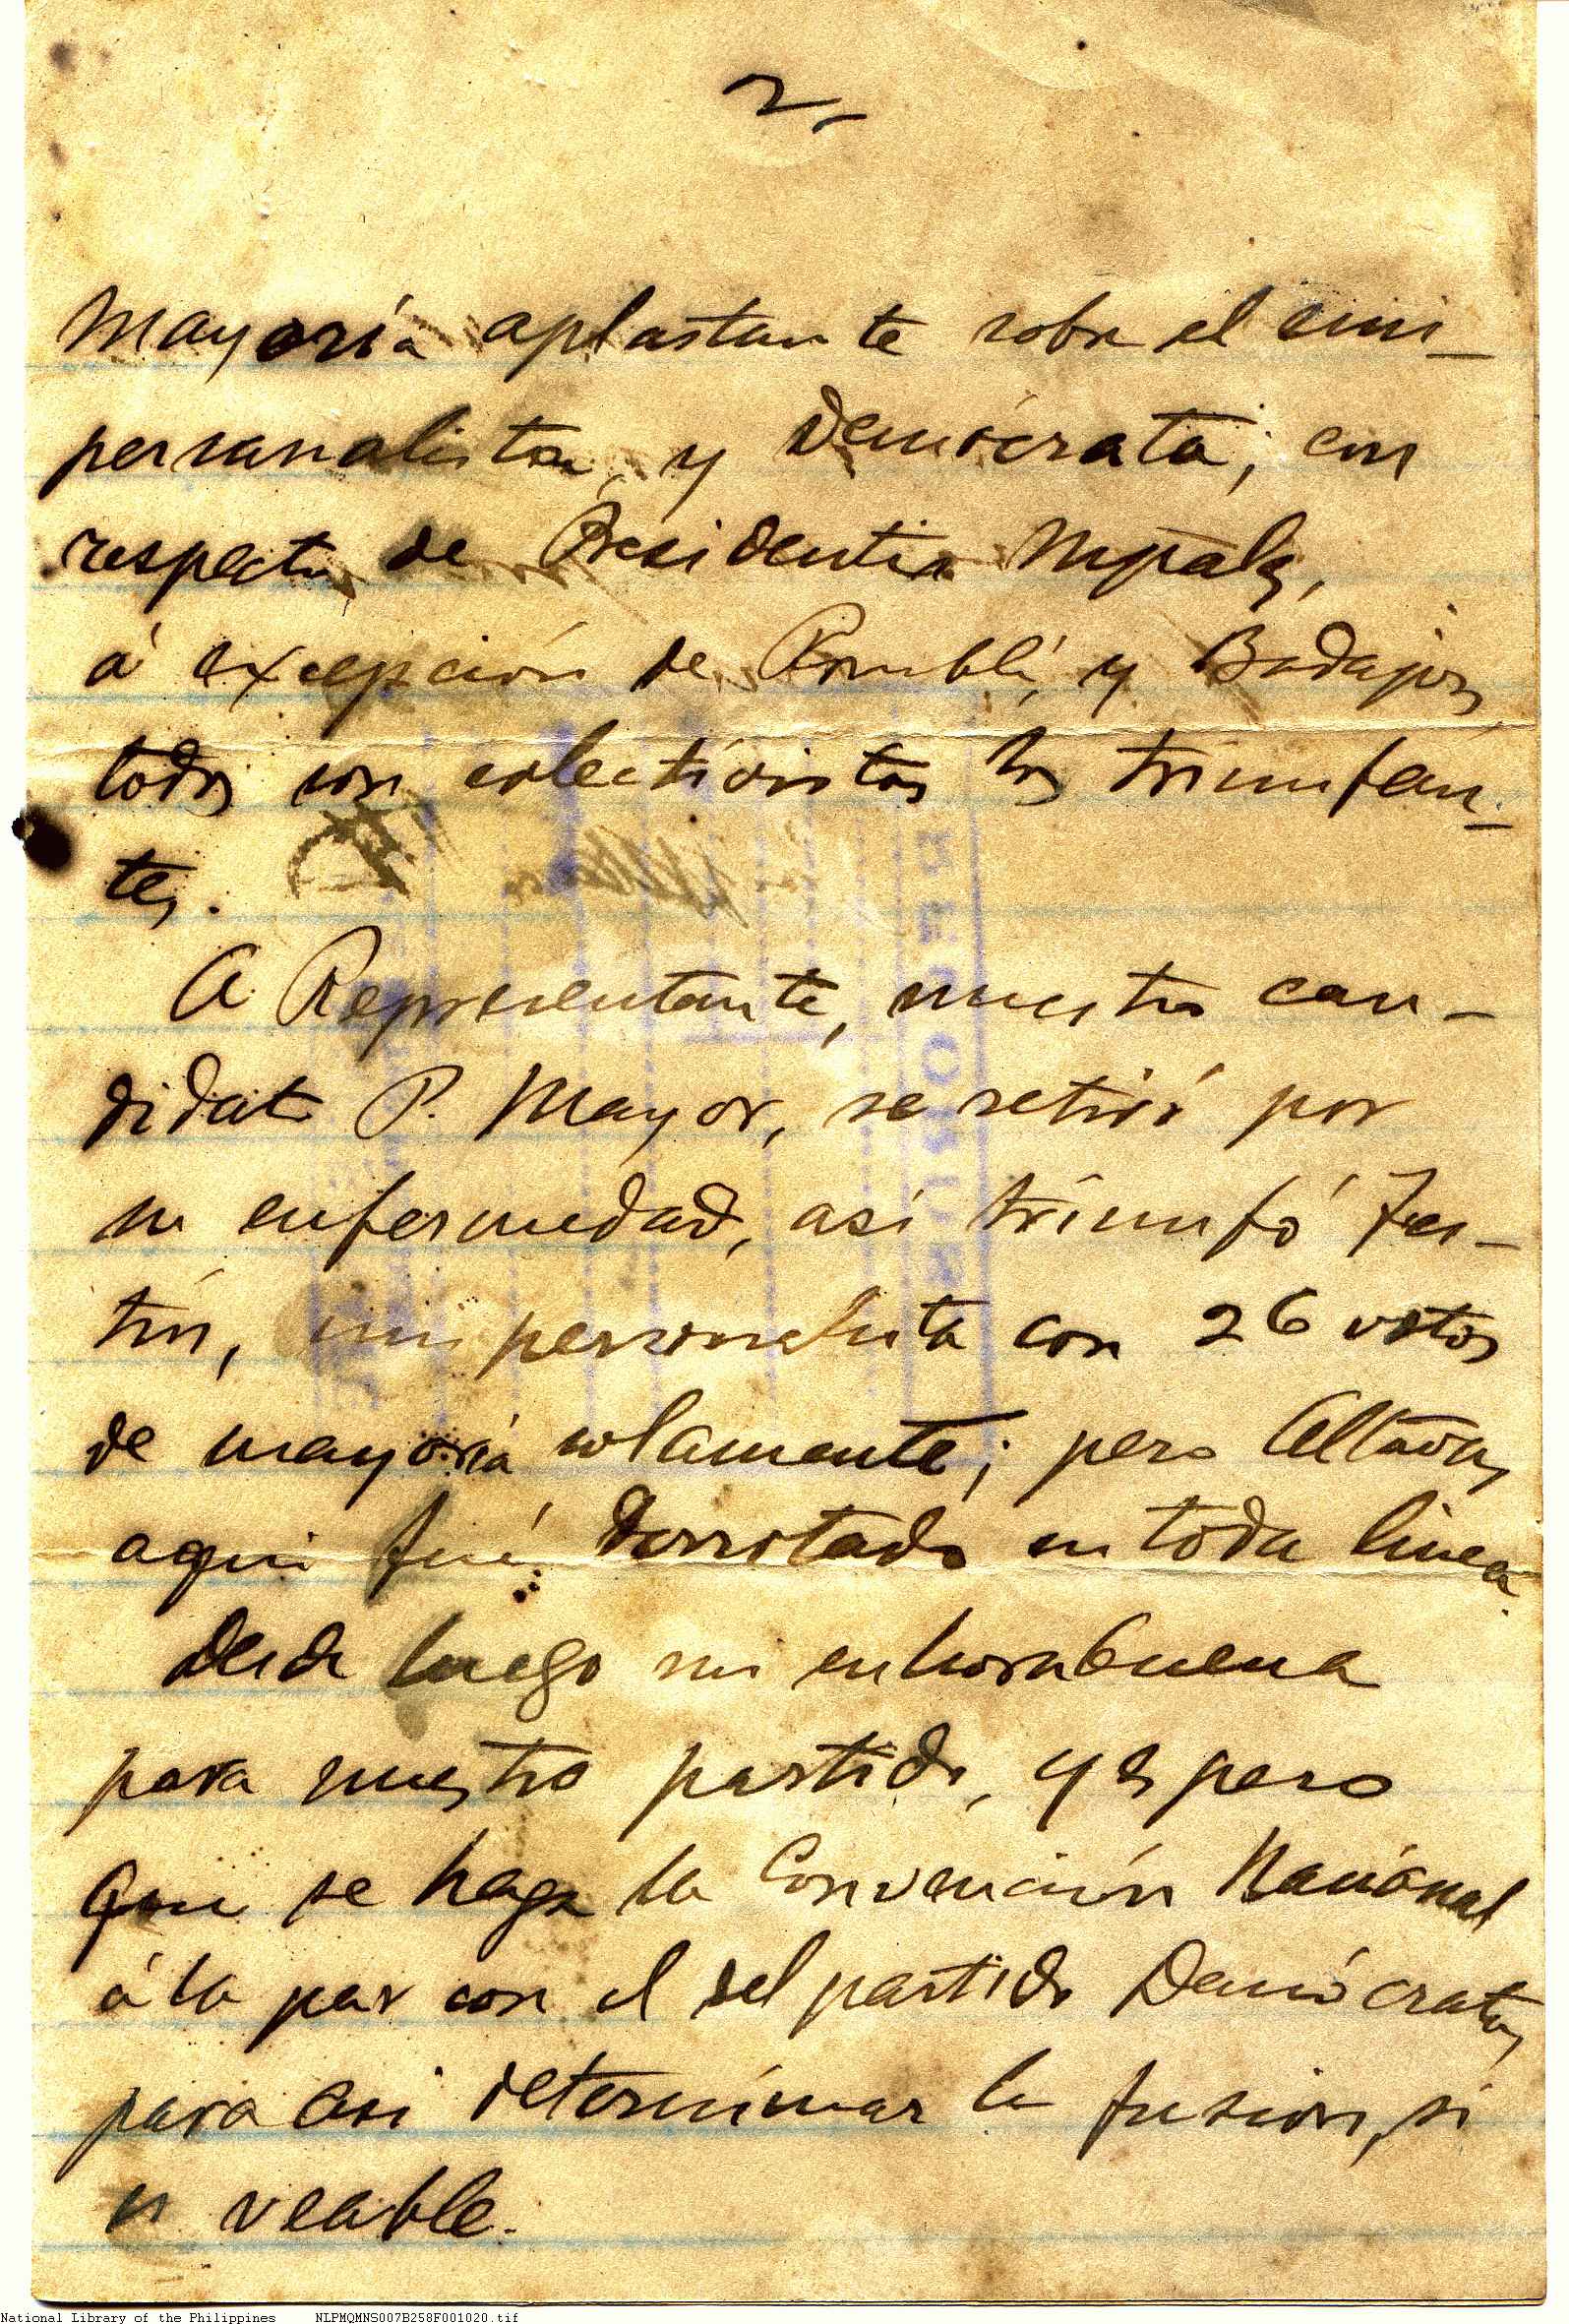 2,
mayoría aplastante sobre el uni-
personalista, y Demócrata; con
respecto de Presidentia Mpales,
á excepción de Romblón, y Badajoz,
todos son colectivistas los triunfan-
tes.
A Representante, nuestro can-
didato P. Mayor, se retiró por
su enfermedad, asi triunfó Fes-
tin, unipersonalista con 26 votos
de mayoría solamente; pero Altavas,
aqui fué derrotado en toda linea.
Desde luego mi enhorabuena
para nuestro partido, y espero
que se haga la Convención Nacional
á la par con el del partido Demócrata,
para asi determinar la fusion, si
es veable.
National Library of the Philippines NLPMQMNS007B258F001020.tif